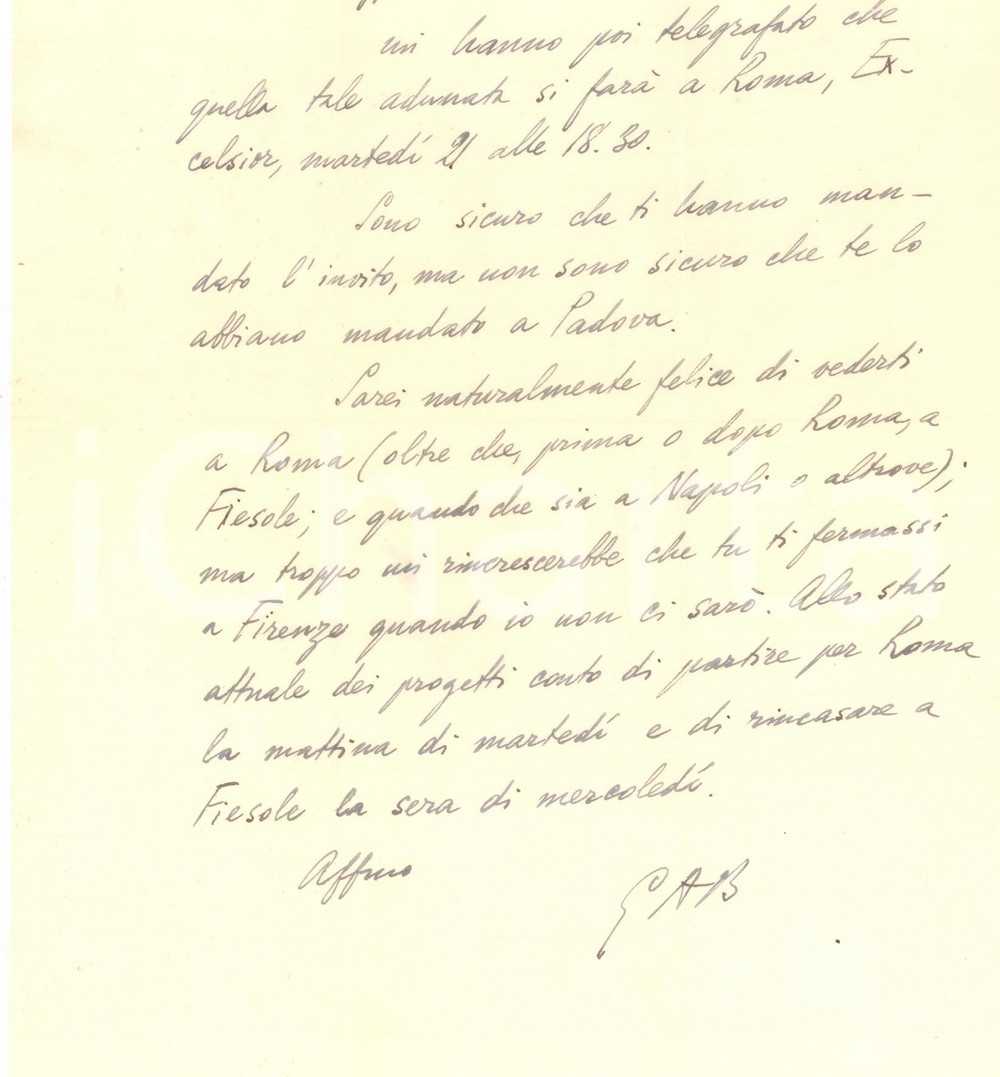 mi hanno poi telegrafato che
quella tale adunata si farà a Roma, Ex-
celsior, martedí 21 alle 18.30.
Sono sicuro che ti hanno man-
dato l'invito, ma non sono sicuro che te lo
abbiano mandato a Padova.
Sarei naturalmente felice di vederti
a Roma (oltre che, prima o dopo Roma, a
Fiesole; e quando che sia a Napoli o altrove);
ma troppo mi rincrescerebbe che tu ti fermassi
a Firenze quando io non ci sarò. Allo stato
attuale dei progetti conto di partire per Roma
la mattina di martedí e di rincasare a
Fiesole la sera di mercoledí.
Affmo
GAB
iCharta